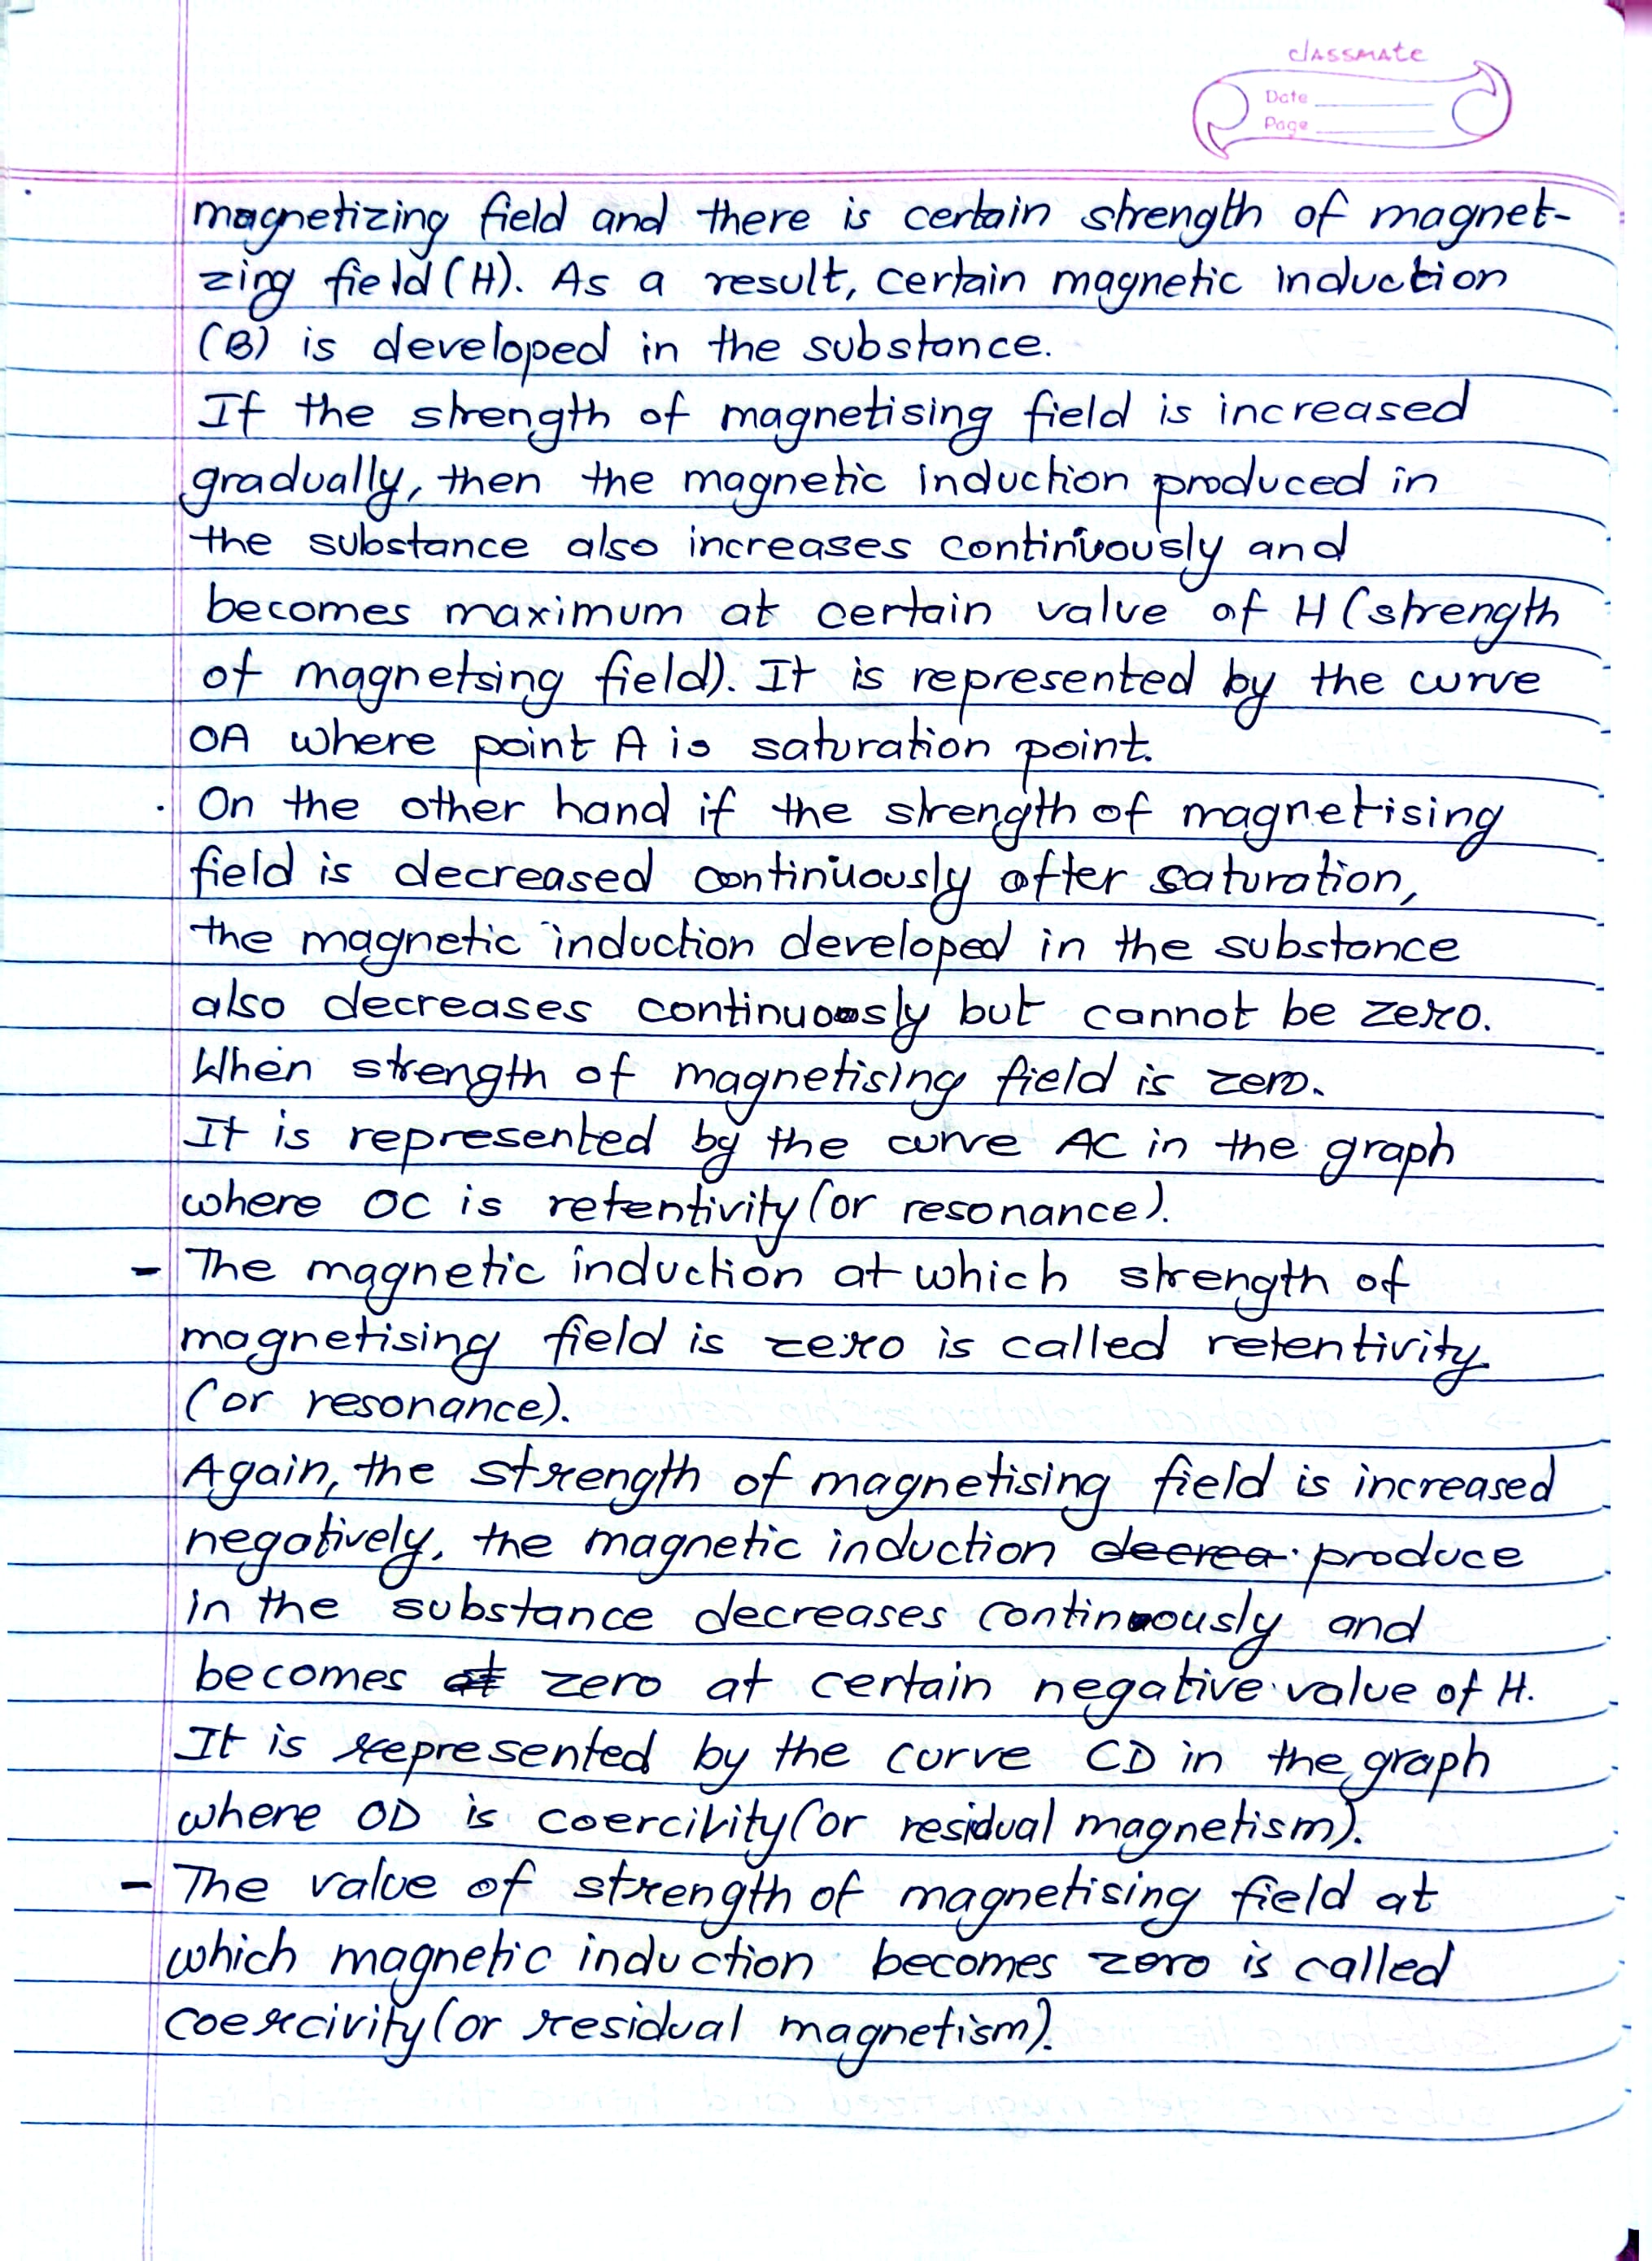 classmate
Date
Page
magnetizing field and there is certain strength of magnet-
zing field (H). As a result, certain magnetic induction
(B) is developed in the substance.
If the strength of magnetising field is increased
gradually, then the magnetic induction produced in
the substance also increases continuously and
becomes maximum at certain value of H (strength
of magnetsing field). It is represented by the curve
OA where point A is saturation point.
. On the other hand if the strength of magnetising
field is decreased continuously after saturation,
the magnetic induction developed in the substance
also decreases continuously but cannot be zero.
When strength of magnetising field is zero.
It is represented by the curve AC in the graph
where OC is retentivity (or resonance).
- The magnetic induction at which strength of
magnetising field is zero is called retentivity
(or resonance).
Again, the strength of magnetising field is increased
negatively, the magnetic induction decrea produce
in the substance decreases continuously and
becomes at zero at certain negative value of H.
It is represented by the curve CD in the graph
where OD is coercivity (or residual magnetism).
- The value of strength of magnetising field at
which magnetic induction becomes zero is called
coercivity (or residual magnetism).